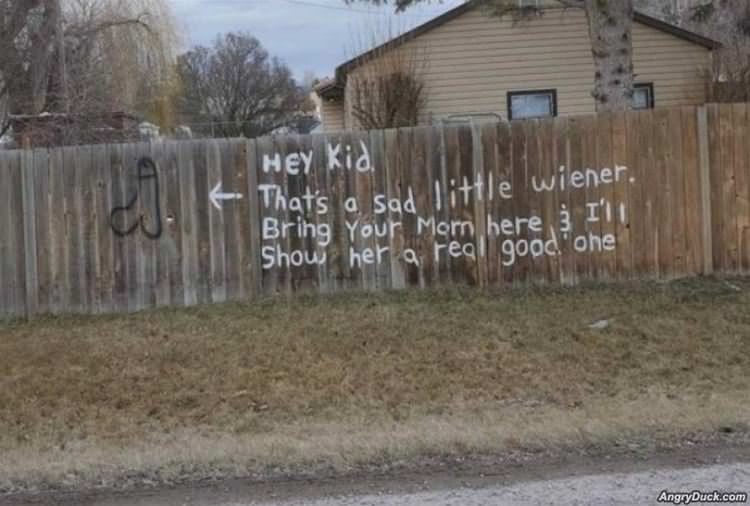 Hey Kid,
← That's a sad little wiener.
Bring Your Mom here & I'll
Show her a real good one
AngryDuck.com